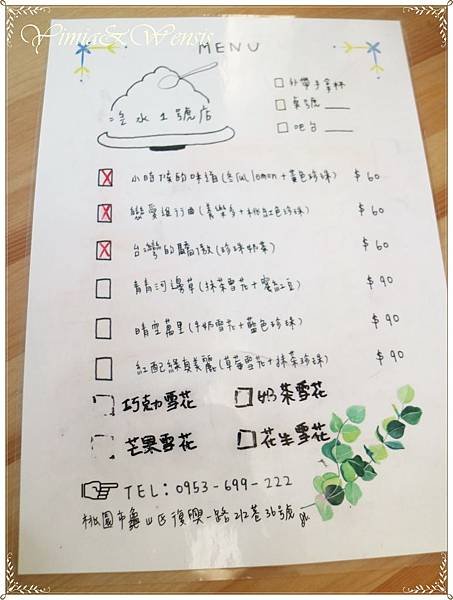 Yimia&Wensis
MENU
冰水1號店
□ 外帶手拿杯
□ 桌號____
□ 吧台
☒ 小時候的味道(冬瓜lemon+黃色珍珠) $60
☒ 戀愛進行曲(養樂多+桃紅色珍珠) $60
☒ 台灣的驕傲(珍珠奶茶) $60
□ 青青河邊草(抹茶雪花+蜜紅豆) $90
□ 晴空萬里(牛奶雪花+藍色珍珠) $90
□ 紅配綠真美麗(草莓雪花+抹茶珍珠) $90
□ 巧克力雪花 □ 奶茶雪花
□ 芒果雪花 □ 花生雪花
TEL:0953-699-222
桃園市龜山區復興一路212巷36號